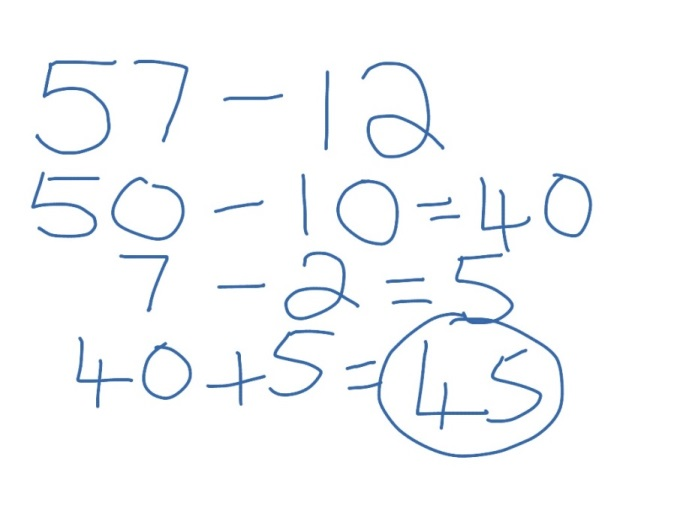 57 - 12
50 - 10 = 40
7 - 2 = 5
40 + 5 = 45